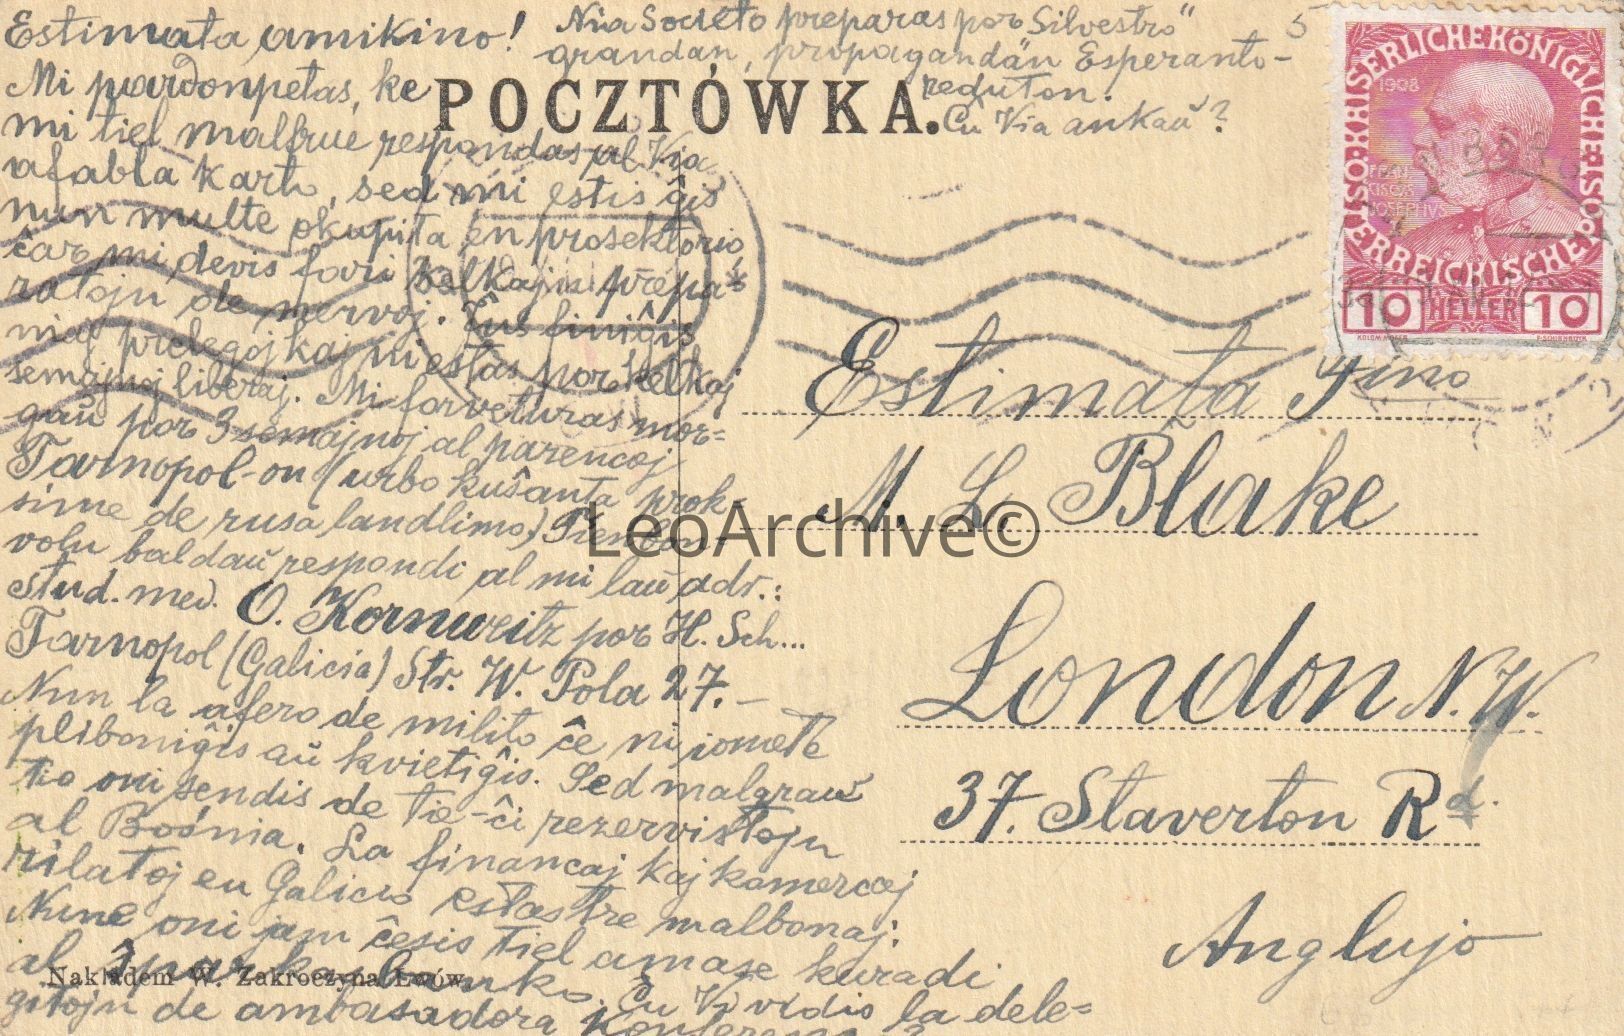 Estimata amikino!
Mi pardonpetas, ke
mi tiel malfrue respondas al Via
afabla karto, sed mi estis ĝis
nun multe okupita en prosektorio
ĉar mi devis fari kelkajn prepa=
ratojn de nervoj. Ĵus finiĝis
niaj prelegoj kaj ni estas por kelkaj
semajnoj liberaj. Mi forveturas mor=
gaŭ por 3 semajnoj al parencoj
Tarnopol-on (urbo kuŝanta prok=
sime de rusa landlimo) Bon=
volu baldaŭ respondi al mi laŭ adr.:
stud. med. O. Kornweitz por H. Sch...
Tarnopol (Galicia) Str. W. Pola 27.–
Nun la afero de milito ĉe ni iomete
pliboniĝis aŭ kvietiĝis. Sed malgraŭ
tio oni sendis de tie-ĉi rezervistojn
al Bośnia. La financaj kaj komercaj
rilatoj en Galicio estas tre malbonaj.
Nune oni jam ĉesis tiel amase kuradi
al ŝparkaso. Ĉu Vi vidis la dele=
gitojn de ambasadora
Nia Societo preparas por „Silvestro"
grandan, propagandan Esperanto-
reduton.
Ĉu Via ankaŭ?
5
POCZTÓWKA.
KAISERLICHE KÖNIGLICHE
ÖSTERREICHISCHE POST
1908
FRAN
CISCVS
JOSEPHVS
10 HELLER 10
Estimata Fino
M. L. Blake
London N.W.
37. Staverton Rd.
Anglujo
Nakładem W. Zakroczyna Lwów.
LeoArchive©